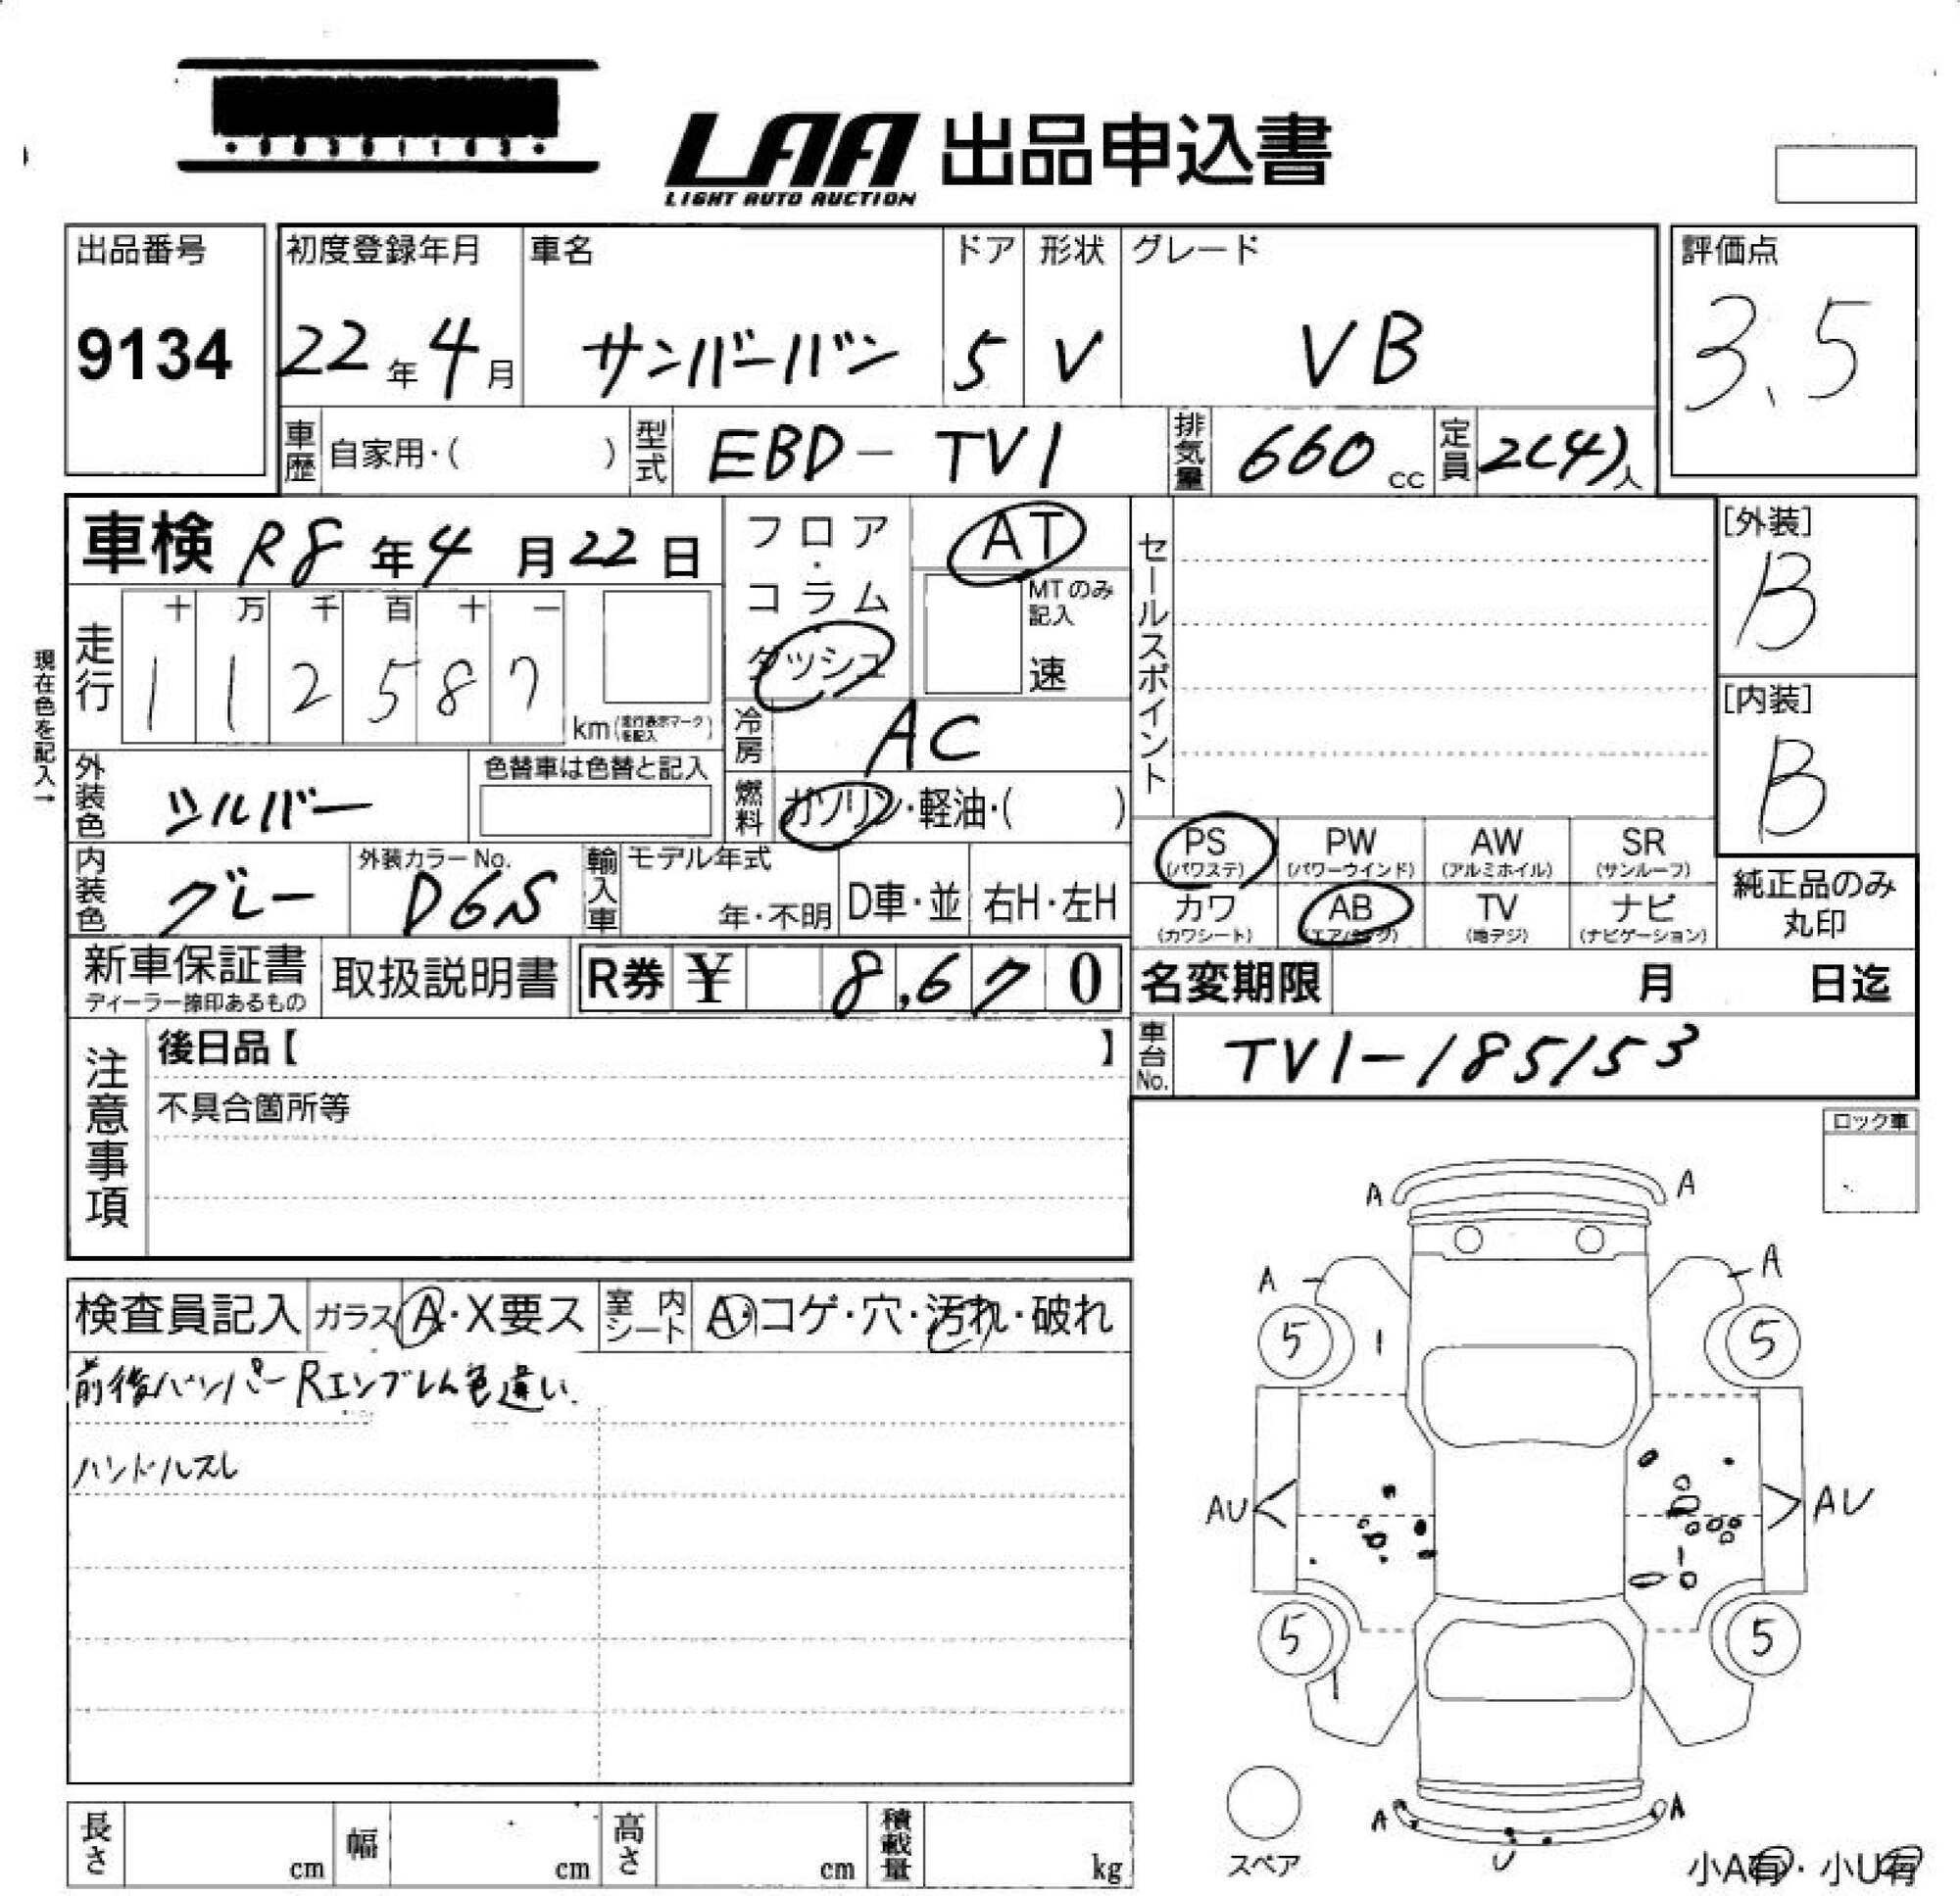 LAA 出品申込書
LIGHT AUTO AUCTION
出品番号
9134
初度登録年月
22年4月
車名
サンバーバン
ドア
5
形状
V
グレード
VB
評価点
3.5
車歴 自家用・( )
型式 EBD-TV1
排気量 660cc
定員 2(4)人
車検 R8年4月22日
フロア・コラム・ダッシュ
AT
MTのみ記入
速
セールスポイント
[外装]
B
[内装]
B
現在色を記入→
走行
十 万 千 百 十 一
1 1 2 5 8 7
km(走行表示マークを記入)
冷房 AC
外装色 シルバー
色替車は色替と記入
燃料 ガソリン・軽油・( )
PS (パワステ)
PW (パワーウインド)
AW (アルミホイル)
SR (サンルーフ)
内装色 グレー
外装カラーNo.
D6S
輸入車
モデル年式
年・不明
D車・並
右H・左H
カワ (カワシート)
AB (エアバック)
TV (地デジ)
ナビ (ナビゲーション)
純正品のみ丸印
新車保証書
ディーラー捺印あるもの
取扱説明書
R券 ¥ 8,670
名変期限 月 日迄
注意事項
後日品【 】
不具合箇所等
車台No. TV1-185153
ロック車
検査員記入
ガラス A・X要ス
室内シート A・コゲ・穴・汚れ・破れ
前後バンパー Rエンブレム色違い
ハンドルスレ
A A
A A
5 5
AU AU
5 5
A A
U
スペア
小A有・小U有
長さ cm
幅 cm
高さ cm
積載量 kg